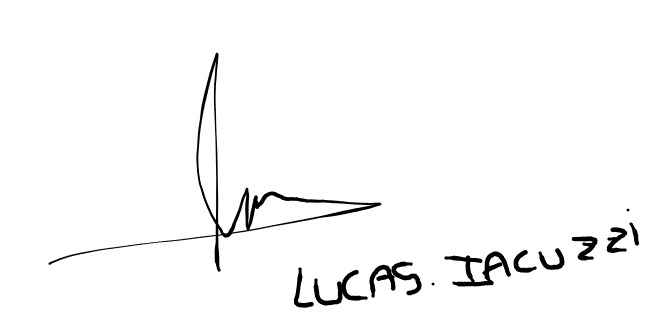 LUCAS. IACUZZI